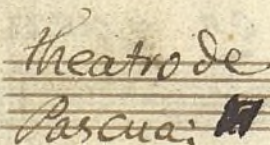 theatro de
Pascua;